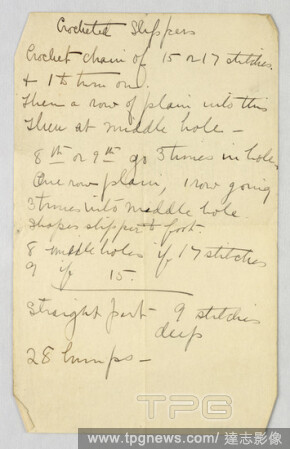 Crocheted Slippers
Crochet chain of 15 or 17 stitches
& 1 to turn on.
Then a row of plain into this
Then at middle hole -
8th or 9th go 3 times in hole
One row plain, 1 row going
3 times into middle hole.
Shapes slipper to foot.
8 middle holes if 17 stitches
9 if 15.
Straight part - 9 stitches
deep
28 humps -
TPG
www.tpgnews.com / 達志影像